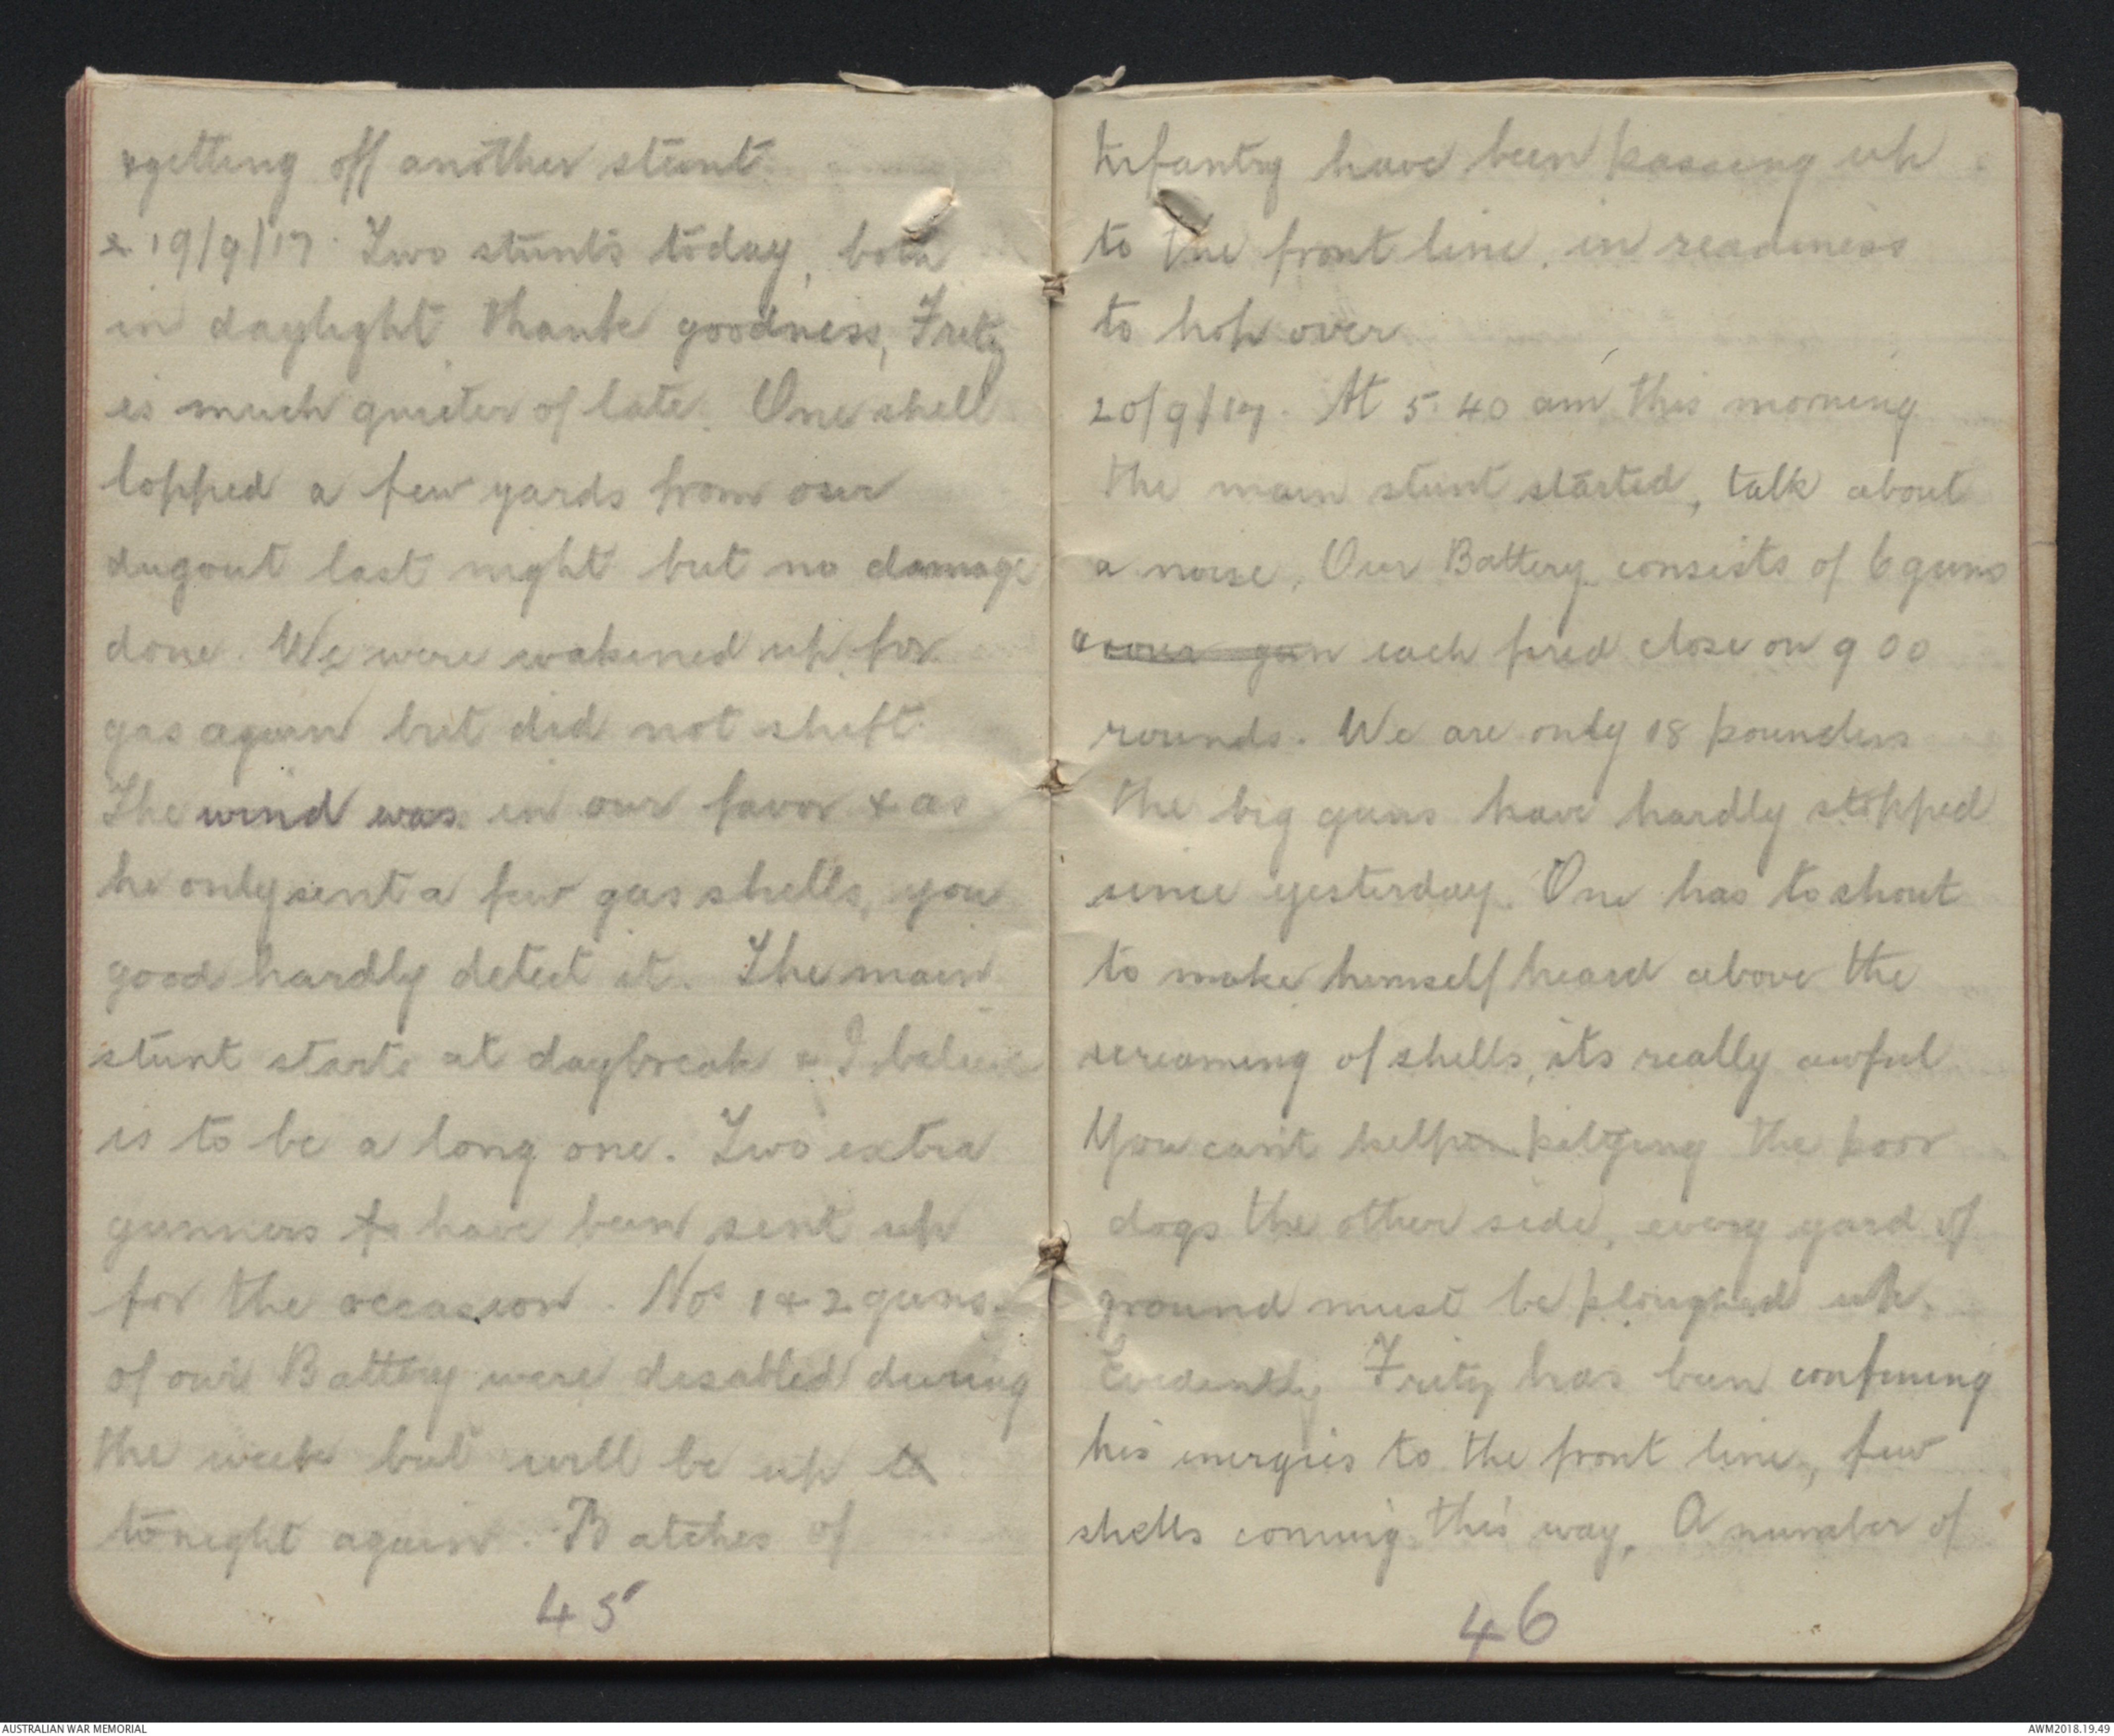 getting off another stunt.
19/9/17. Two stunts today, both
in daylight thank goodness, Fritz
is much quieter of late. One shell
lopped a few yards from our
dugout last night but no damage
done. We were wakened up for
gas again but did not shift.
The wind was in our favor & as
he only sent a few gas shells, you
good hardly detect it. The main
stunt starts at daybreak & I believe
is to be a long one. Two extra
gunners to have been sent up
for the occasion. Nos 1 & 2 guns
of our Battery were disabled during
the week but will be up to
tonight again. Batches of
45
Infantry have been passing up
to the front line, in readiness
to hop over
20/9/17. At 5.40 am this morning
the main stunt started, talk about
a noise. Our Battery consists of 6 guns
gun each fired close on 900
rounds. We are only 18 pounders
the big guns have hardly stopped
since yesterday. One has to shout
to make himself heard above the
screaming of shells, its really awful
You can't help pitying the poor
dogs the other side, every yard of
ground must be ploughed up.
Evidently Fritz has been confining
his energies to the front line, few
shells coming this way. A number of
46
AUSTRALIAN WAR MEMORIAL
AWM2018.19.49